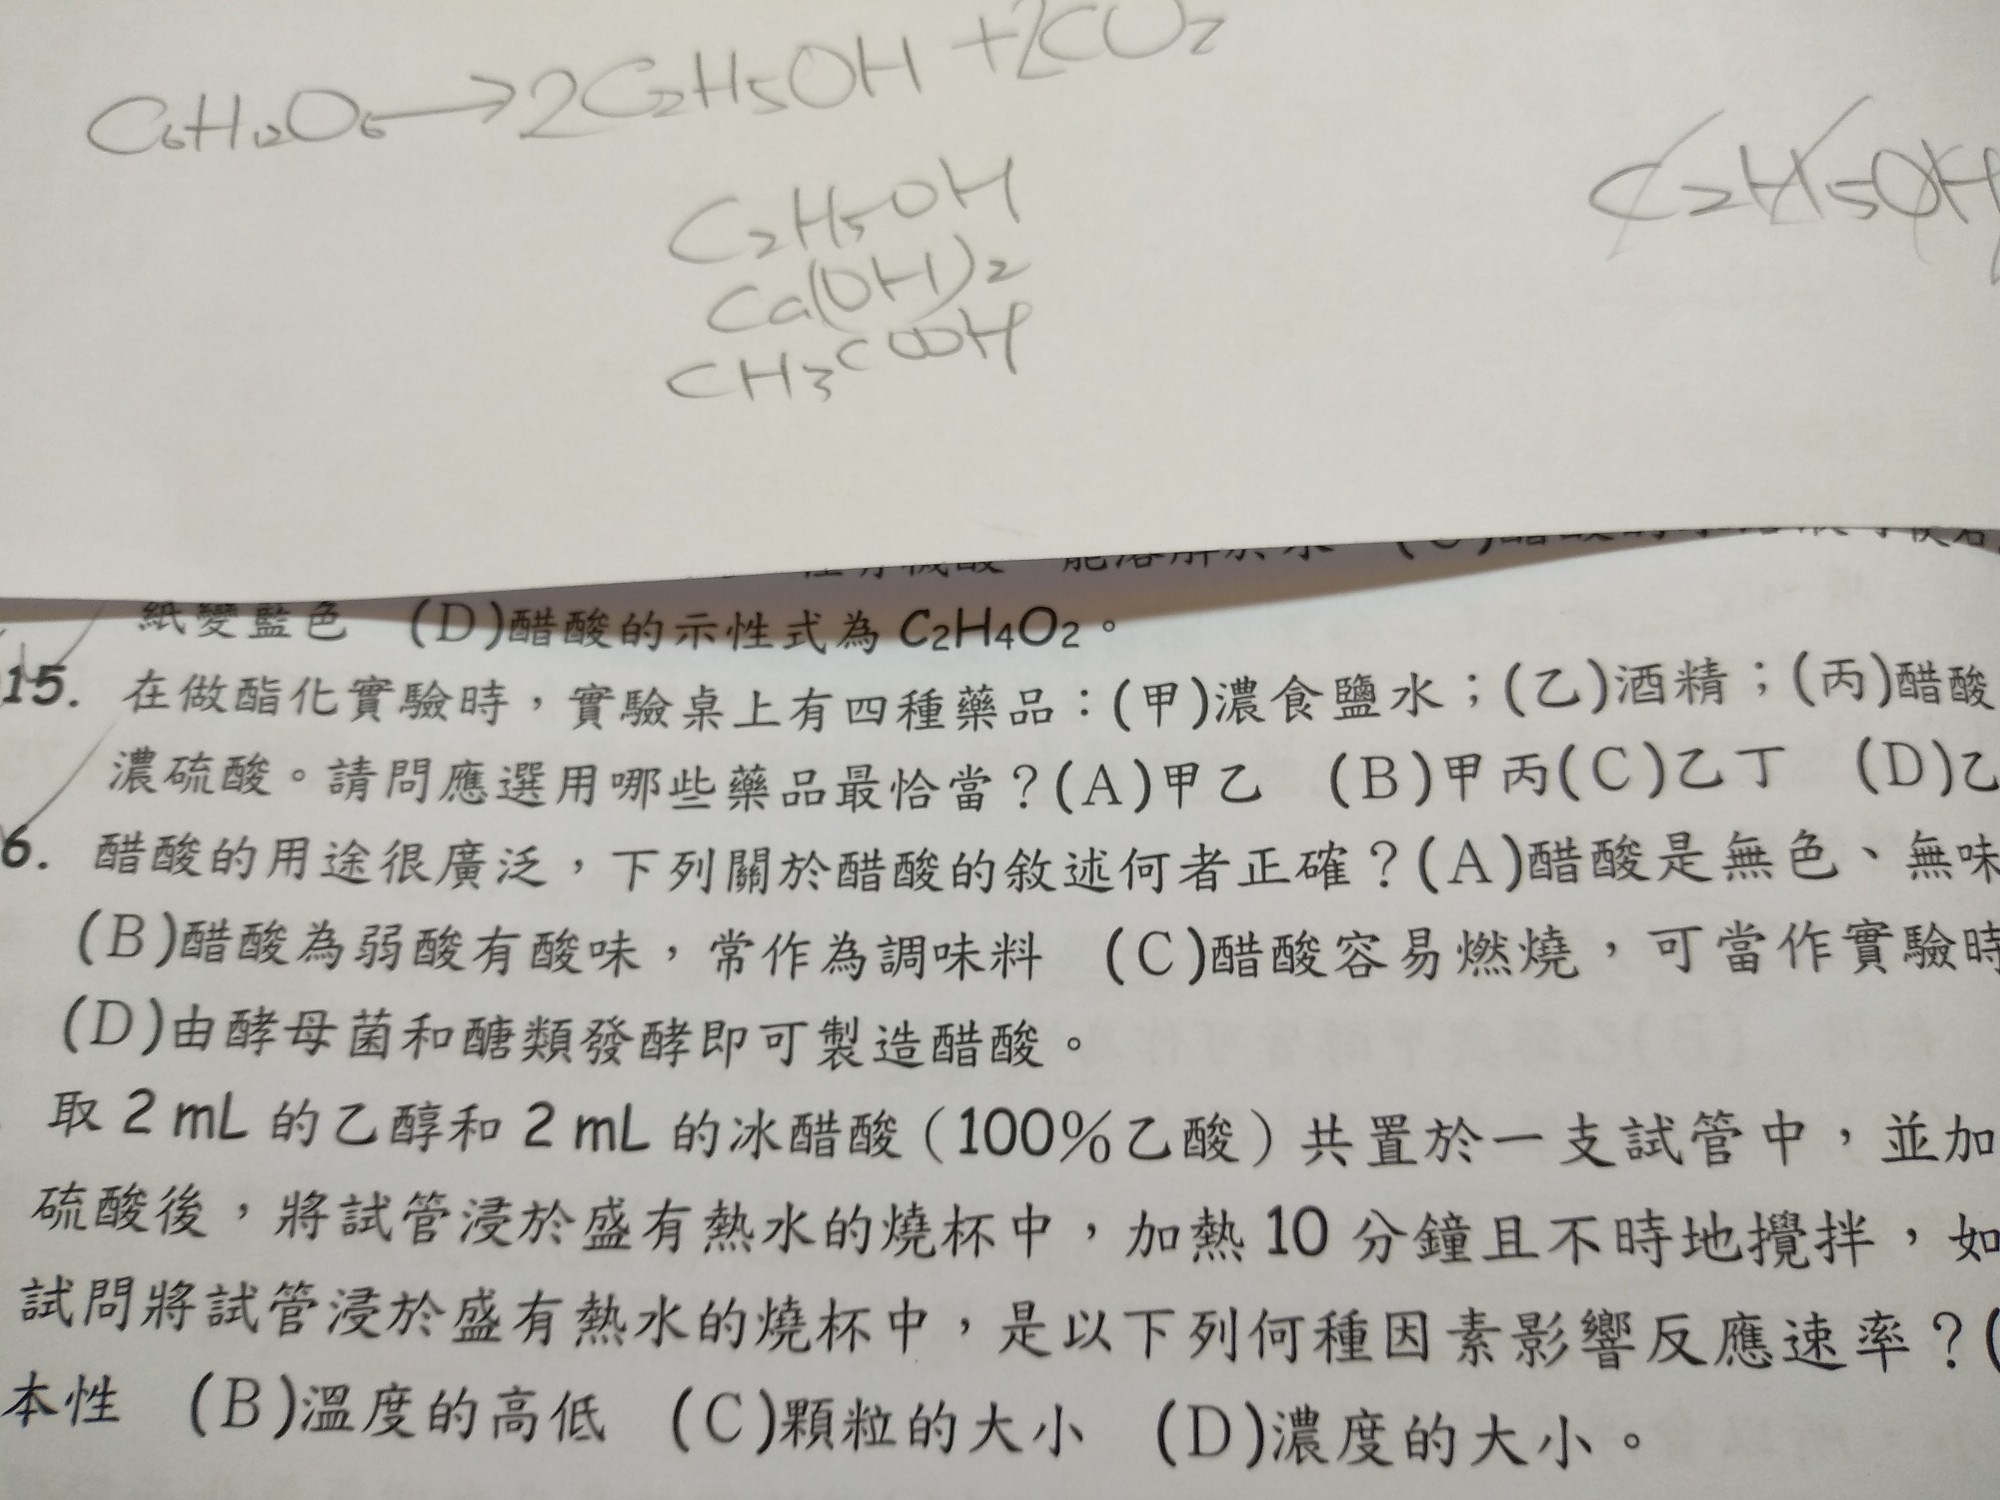 C6H12O6→2C2H5OH+2CO2
C2H5OH
C2H5OH
Ca(OH)2
CH3COOH
能溶解於水 (C)醋酸的水溶液可使石
紙變藍色 (D)醋酸的示性式為 C2H4O2。
15. 在做酯化實驗時，實驗桌上有四種藥品：(甲)濃食鹽水；(乙)酒精；(丙)醋酸
濃硫酸。請問應選用哪些藥品最恰當？(A)甲乙 (B)甲丙(C)乙丁 (D)乙
6. 醋酸的用途很廣泛，下列關於醋酸的敘述何者正確？(A)醋酸是無色、無味
(B)醋酸為弱酸有酸味，常作為調味料 (C)醋酸容易燃燒，可當作實驗時
(D)由酵母菌和醣類發酵即可製造醋酸。
取 2 mL 的乙醇和 2 mL 的冰醋酸（100%乙酸）共置於一支試管中，並加
硫酸後，將試管浸於盛有熱水的燒杯中，加熱 10 分鐘且不時地攪拌，如
試問將試管浸於盛有熱水的燒杯中，是以下列何種因素影響反應速率？(
本性 (B)溫度的高低 (C)顆粒的大小 (D)濃度的大小。